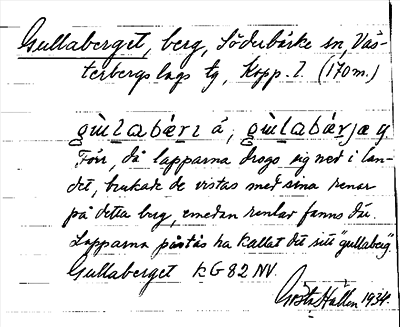 Gullaberget, berg, Söderbärke sn, Väs-
terbergslags tg, Kopp. l. (170 m.)
gùlabäri å, gùlabárjæ y
Förr, då lapparna drogo sig ned i lan-
det, brukade de vistas med sina renar
på detta berg, emedan renlav fanns där.
Lapparna påstås ha kallat det sitt "gullaberg".
Gullaberget kG82NV.
Gösta Hallén 1934.